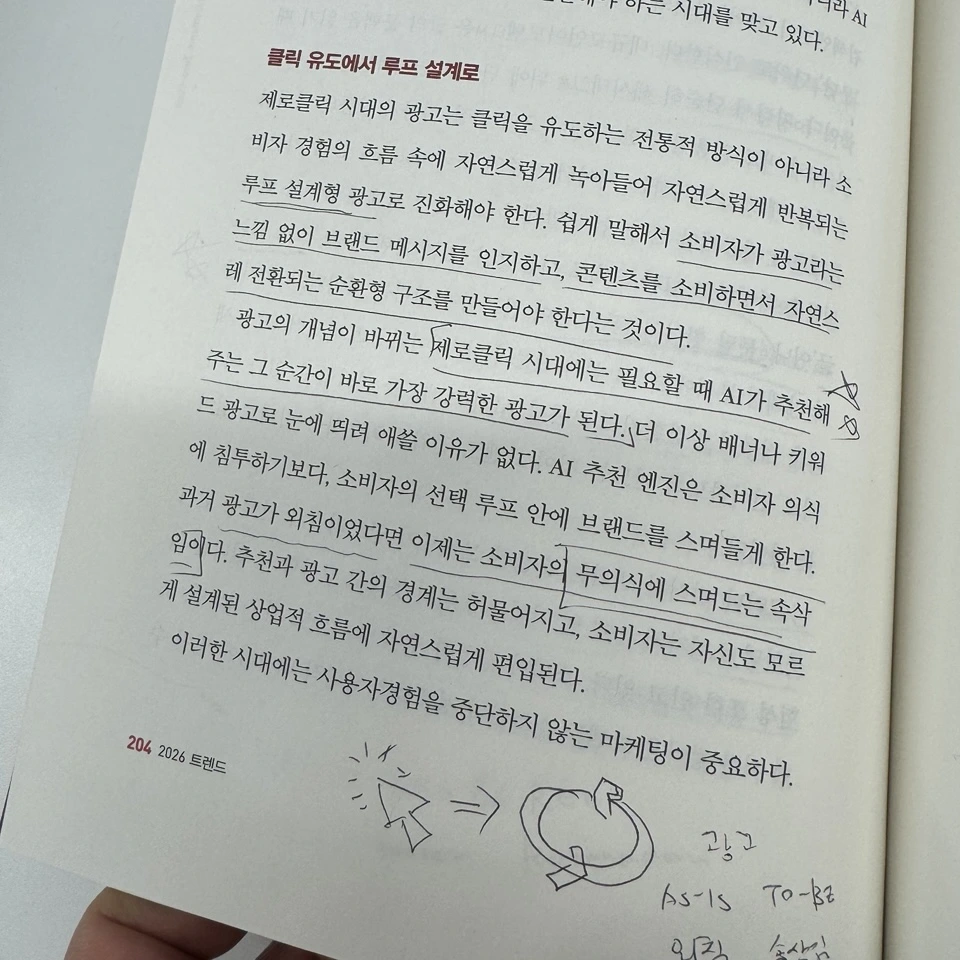 니라 AI
하는 시대를 맞고 있다.
클릭 유도에서 루프 설계로
제로클릭 시대의 광고는 클릭을 유도하는 전통적 방식이 아니라 소
비자 경험의 흐름 속에 자연스럽게 녹아들어 자연스럽게 반복되는
루프 설계형 광고로 진화해야 한다. 쉽게 말해서 소비자가 광고라는
느낌 없이 브랜드 메시지를 인지하고, 콘텐츠를 소비하면서 자연스
레 전환되는 순환형 구조를 만들어야 한다는 것이다.
광고의 개념이 바뀌는 제로클릭 시대에는 필요할 때 AI가 추천해
주는 그 순간이 바로 가장 강력한 광고가 된다. 더 이상 배너나 키워
드 광고로 눈에 띄려 애쓸 이유가 없다. AI 추천 엔진은 소비자 의식
에 침투하기보다, 소비자의 선택 루프 안에 브랜드를 스며들게 한다.
과거 광고가 외침이었다면 이제는 소비자의 무의식에 스며드는 속삭
임이다. 추천과 광고 간의 경계는 허물어지고, 소비자는 자신도 모르
게 설계된 상업적 흐름에 자연스럽게 편입된다.
이러한 시대에는 사용자경험을 중단하지 않는 마케팅이 중요하다.
204 2026 트렌드
광고
AS-IS TO-BE
외침 속삭임